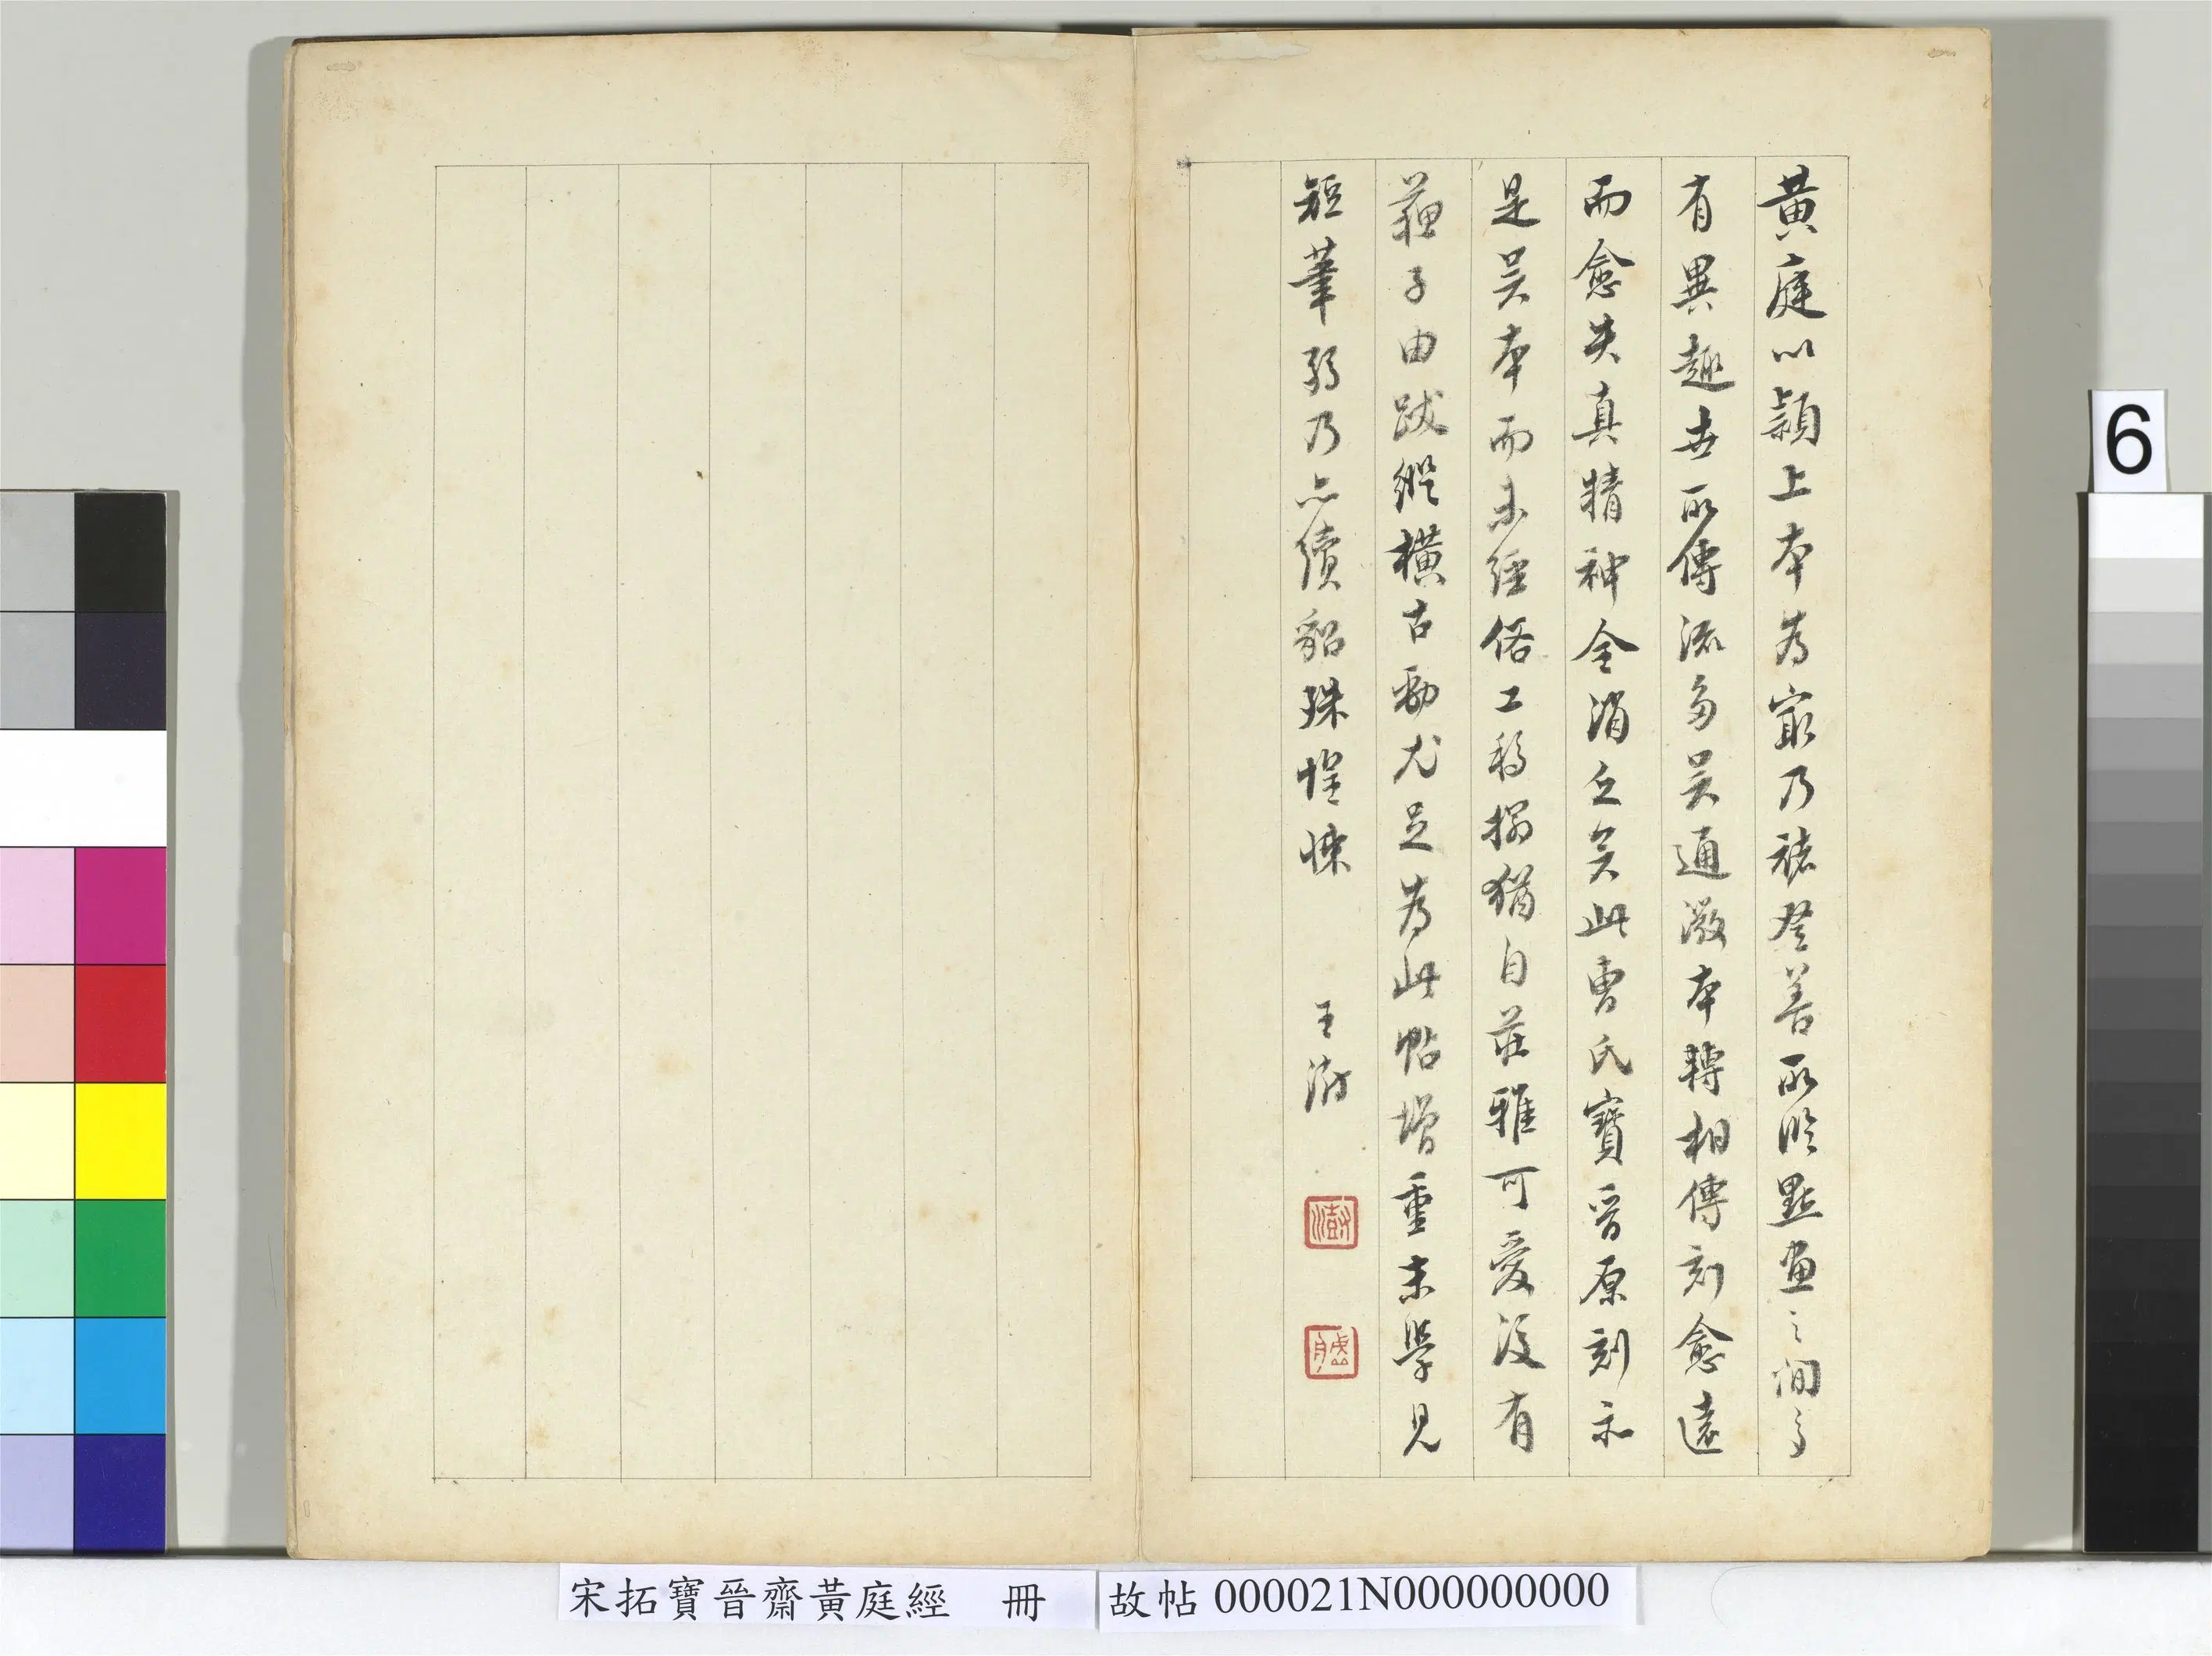 黃庭以潁上本為寂乃褚登善所臨點畫之間多
有異趣世所傳流多吳通微本轉相傳刻愈遠
而愈失真精神全消亡矣此曹氏寶晉原刻亦
是吳本而未經俗工移搨猶自莊雅可愛後有
蘇子由跋縱橫古勁尤足為此帖增重末學見
短筆弱乃亦續貂殊惶悚 王澍
澍
6
宋拓寶晉齋黃庭經 冊
故帖 000021N000000000